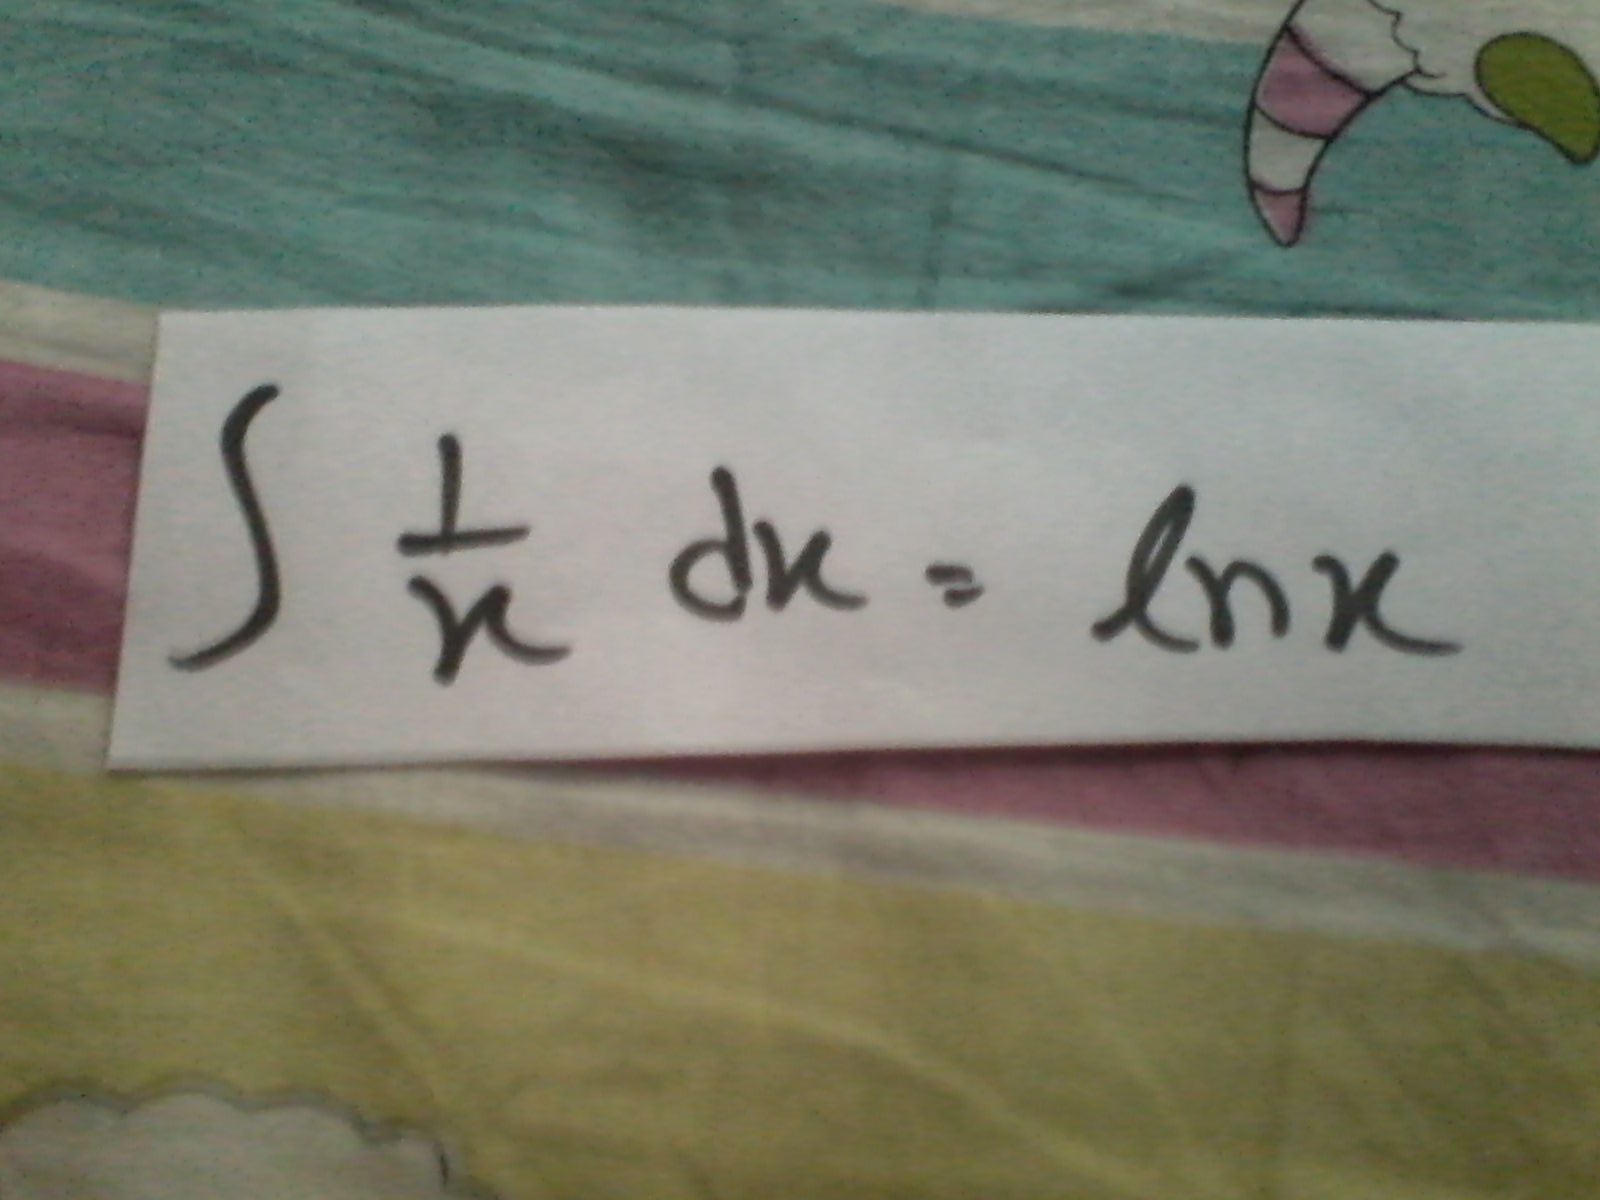 ∫ 1/x dx = ln x